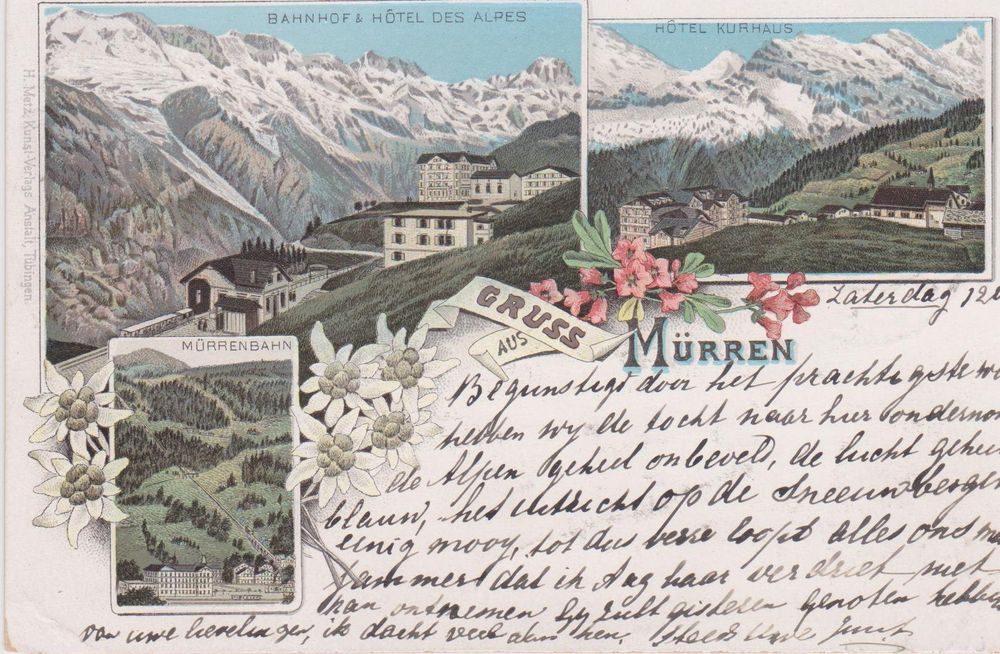 BAHNHOF & HÔTEL DES ALPES
HÔTEL KURHAUS
H. Metz, Kunst-Verlags-Anstalt, Tübingen.
MÜRRENBAHN
GRUSS
AUS
MÜRREN
Zaterdag 12
Begunstigd door het prachtigste
hebben wy de tocht naar hier
de Alpen geheel onbeveld, de lucht
blauw, het uitzicht op de sneeuwbergen
eenig mooy, tot dus verre loopt alles ons
jammer dat ik Aag haar verdriet niet
kan ontnemen Gy zult gisteren genoten
van uwe lievelingen, ik dacht veel aan hen. Steeds Uwe